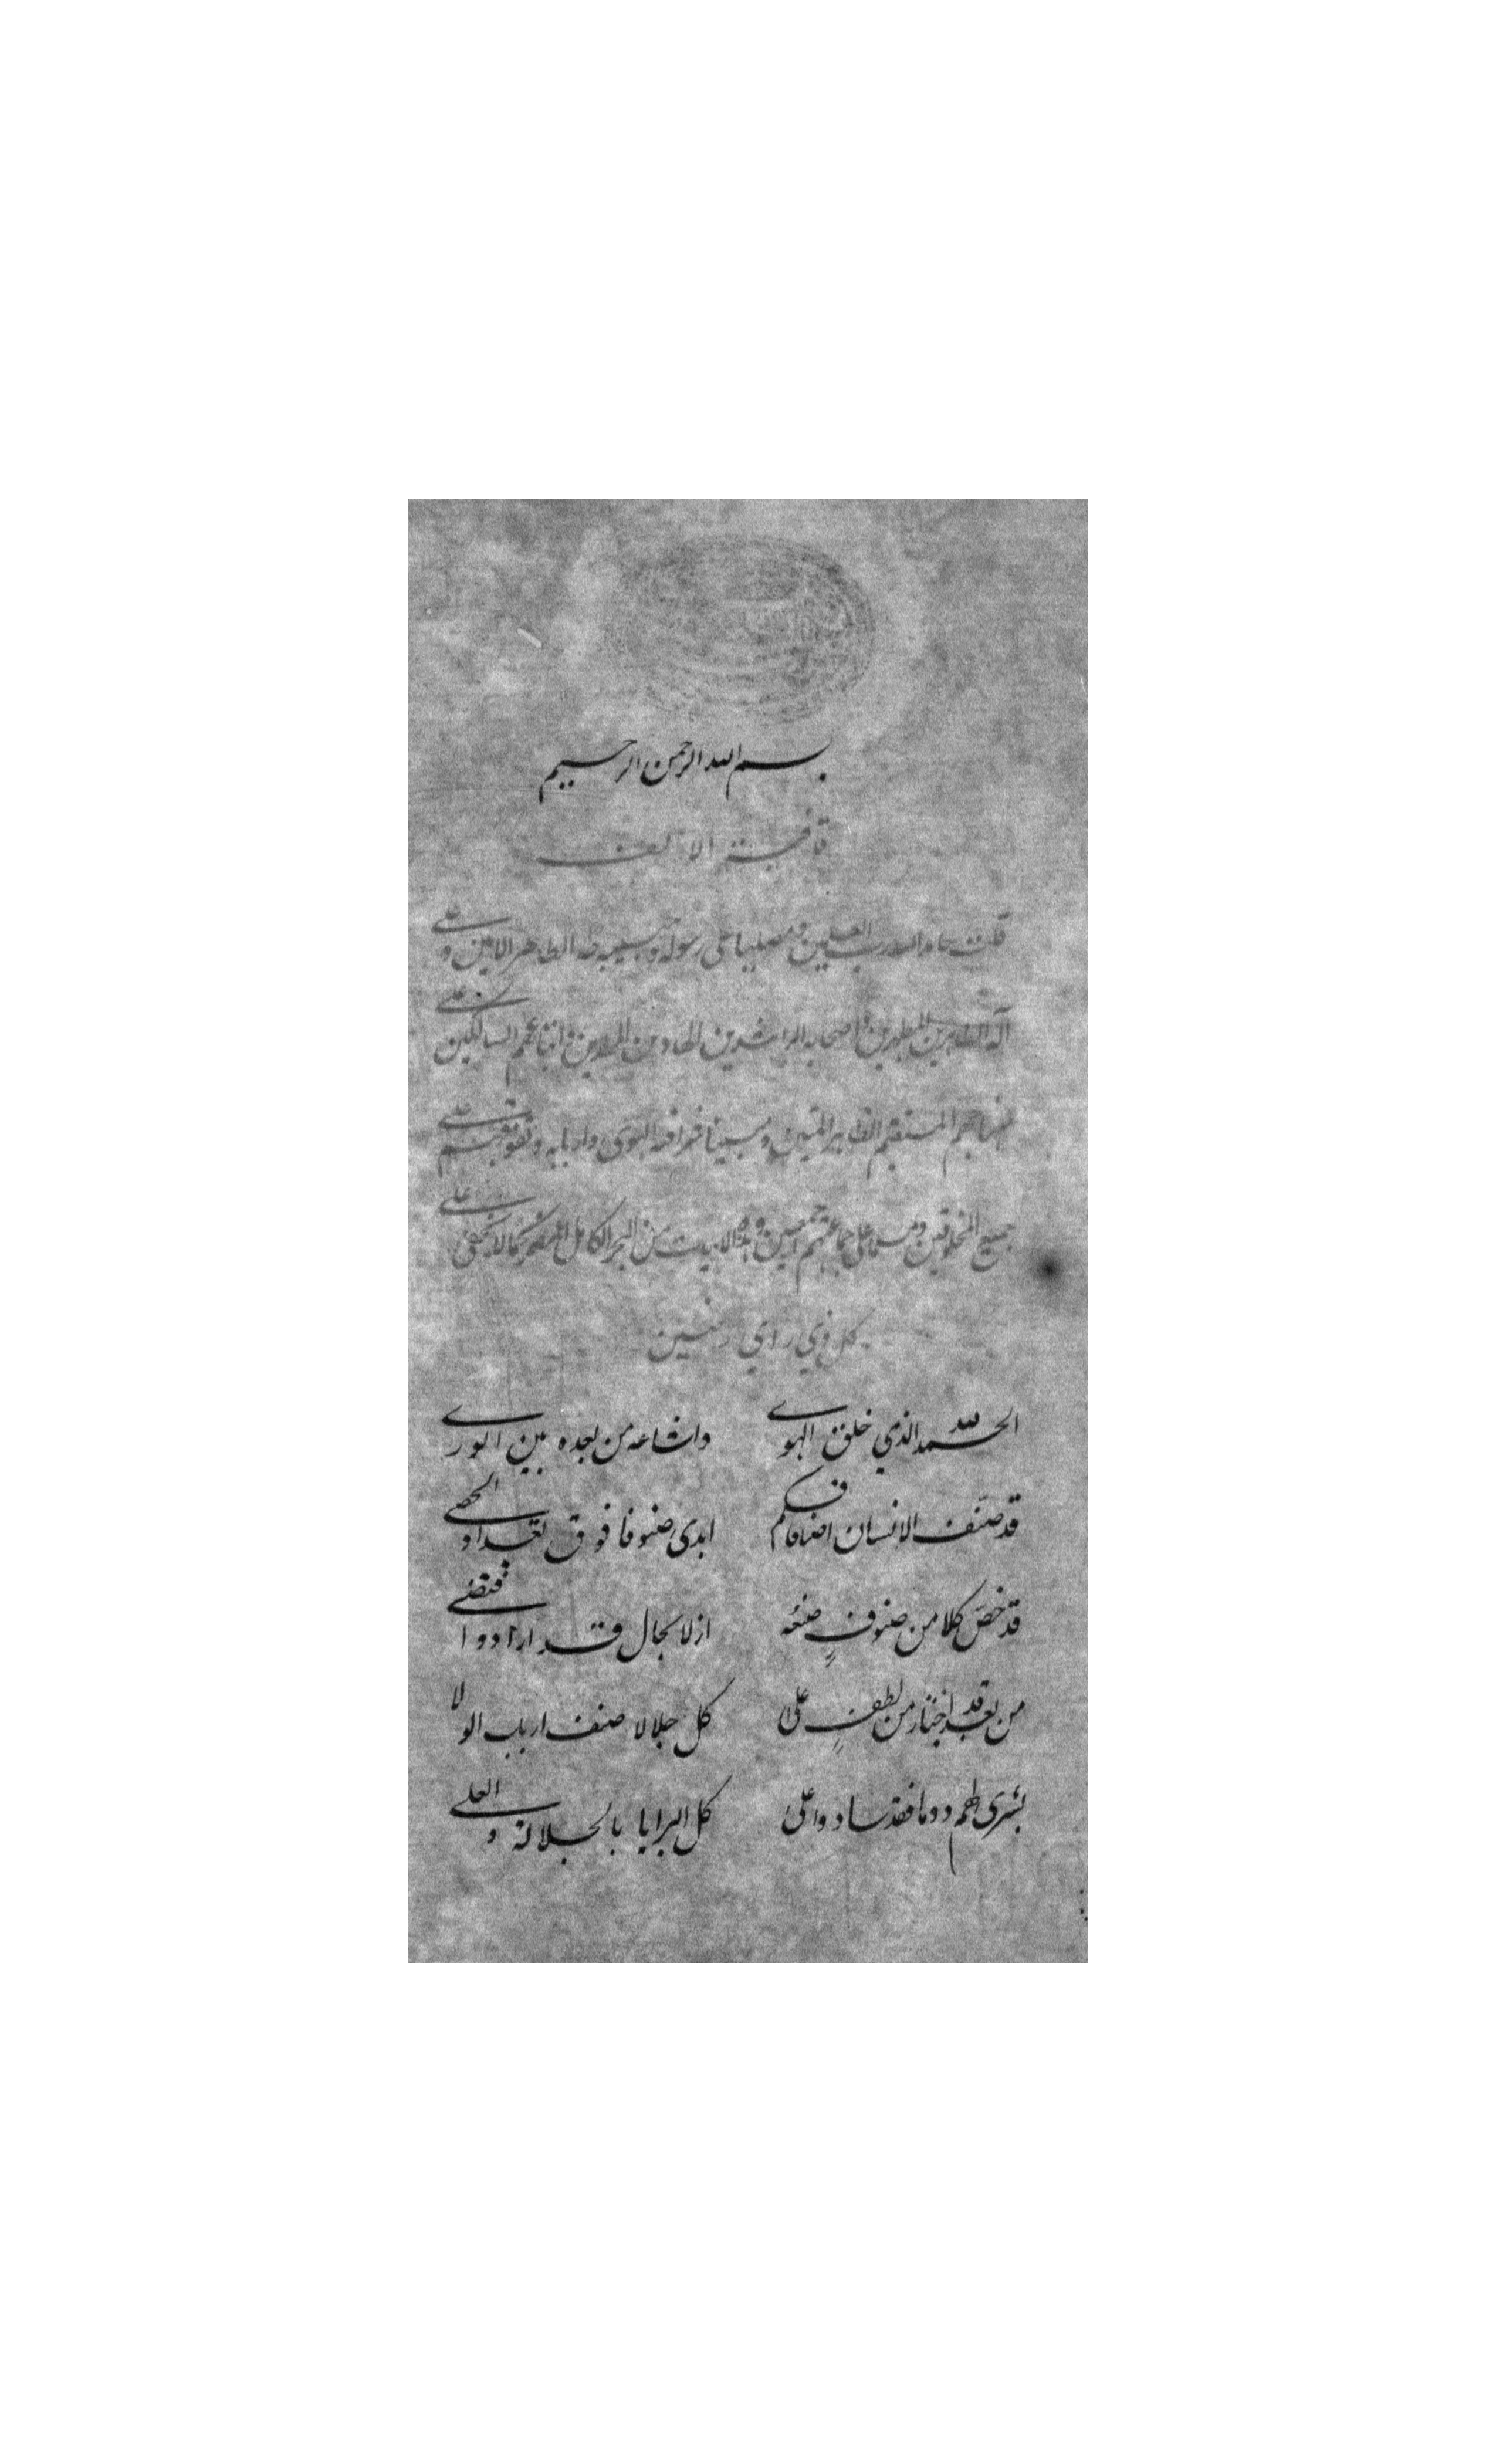 بسم الله الرحمن الرحيم
قافية الالف
قلت حامدا لله رب العلمين ومصليا على رسوله وحبيبه طه الطاهر الامين وعلى
آله الطاهرين المطهرين واصحابه الراشدين الهادين المهديين واتباعهم السالكين على
منهاجهم المستقيم الظاهر المتين ومبينا شرافة الهوى واربابه وتفوقهم على
جميع المخلوقين ومسلما على جماعتهم اجمعين وهذه الابيات من البحر الكامل المضمر كما لا يخفى على
كل ذي راي رزين
الحمد لله الذي خلق الهوى واشاعه من بعده بين الورى
قد صنف الانسان اصنافا فكم ابدى صنوفا فوق تعداد الحصى
قد خص كلا من صنوف صنعه ازلا بحال قد ارادوا اقتضى
من بعد قد اختار من لطف على كل جلالا صنف ارباب الولا
بشرى لهم دوما فقد سادوا على كل البرايا بالجلالة والعلى